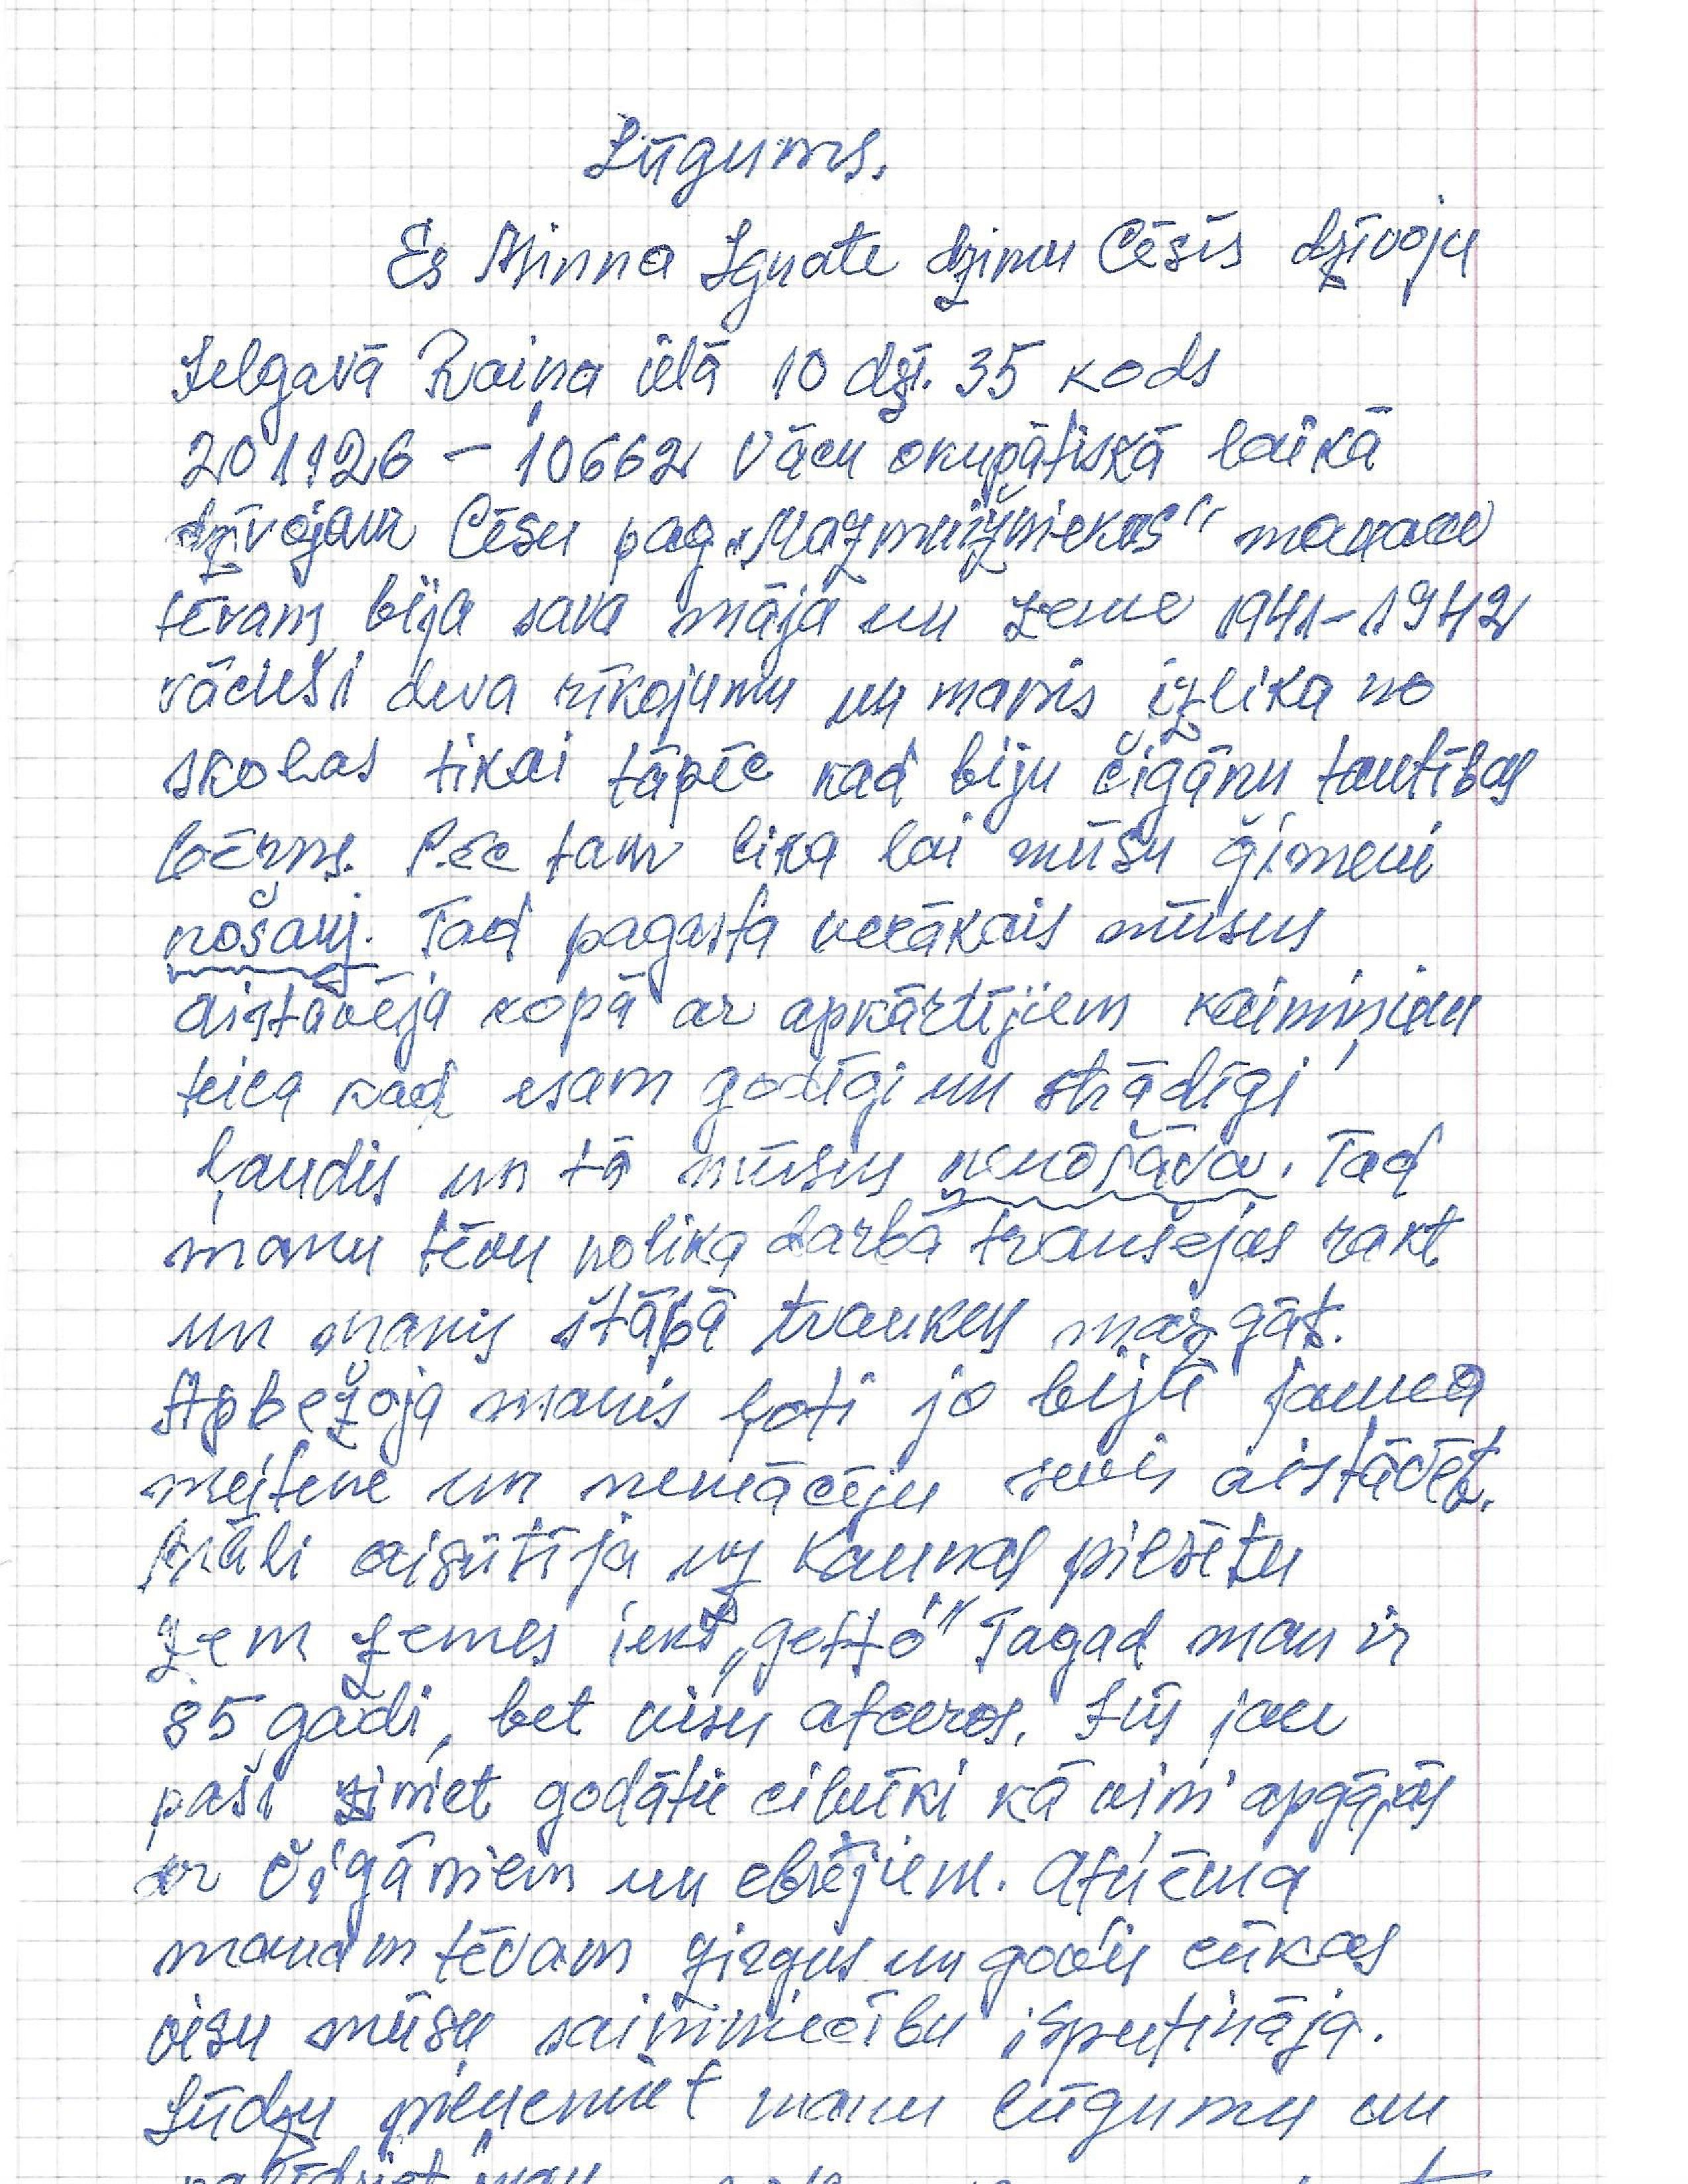 Lūgums.
Es Minna Ignate dzimu Cēsīs dzīvoju
Jelgavā Raiņa ielā 10 dzī. 35 kods
201126 – 10662 Vācu okupātiskā laikā
dzīvojam Cēsu pag „Mazmuižniekos" manam
tēvam bija sava māja un zeme 1941–1942
vācieši deva rīkojumu un manis izlika no
skolas tikai tāpēc kad biju čigānu tautības
bērns. Pēc tam lika lai mūsu ģimeni
nošauj. Tad pagasta vecākais mūsus
aistāvēja kopā ar apkārtējiem kaimiņiem
teica kad esam godīgi un strādīgi
ļaudis un tā mūsus nenošāva. Tad
manu tēvu nolika darbā transējas rakt
un manis štābā traukus mazgāt.
Apbežoja manis ļoti jo biju jauna
meitene un nemācēju sevis aistāvēt.
Brāli aisūtīja uz Kaunas pilsētu
zem zemes iekš „getto" Tagad man ir
85 gadi, bet visu atceros. Jūs jau
paši ziniet godātie cilvēki kā viņi apgājās
ar čigāniem un ebrējiem. Atņēma
manam tēvam zirgus un govis cūkas
visu mūsu saimniecību isputināja.
Lūdzu pieņemiet manu lūgumu un
palīdziet man